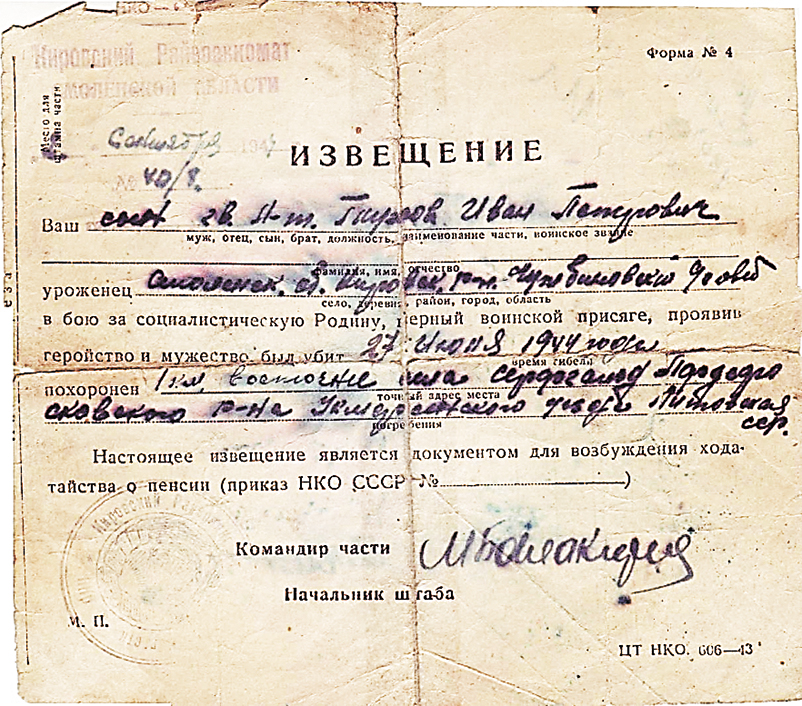 Кировский Райвоенкомат
СМОЛЕНСКОЙ ОБЛАСТИ
Форма № 4
Место для
штампа части
6 октября 1944
№ 40/8.
ИЗВЕЩЕНИЕ
Ваш сын гв. Л-т. Иван Петрович
муж, отец, сын, брат, должность, наименование части, воинское звание
фамилия, имя, отчество
уроженец Смоленск. об. Кировск. р-н.
село, деревня, район, город, область
в бою за социалистическую Родину, верный воинской присяге, проявив
геройство и мужество был убит 27 Июня 1944 года
время гибели
похоронен 1 км. восточнее села
точный адрес места
р-на уезда Литовская
погребения
сср.
Настоящее извещение является документом для возбуждения хода-
тайства о пенсии (приказ НКО СССР № )
Командир части
Начальник штаба
М. П.
ЦТ НКО. 606—43